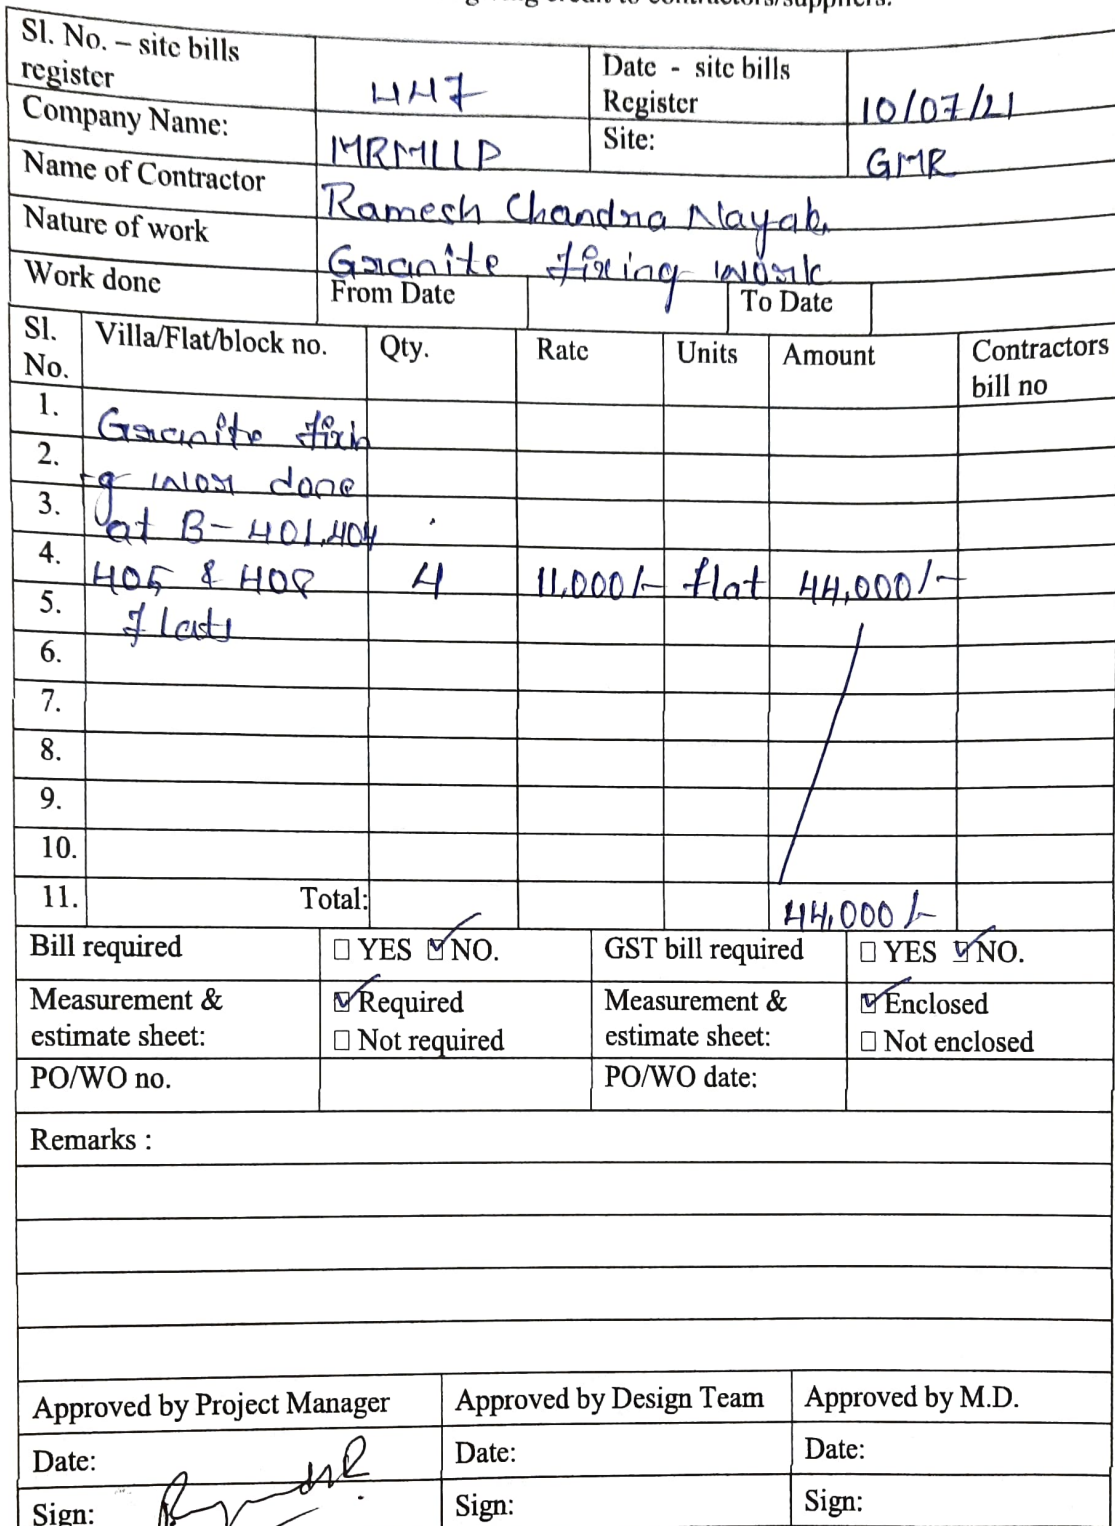 giving credit to contractors/suppliers.
Sl. No. – site bills register 447 Date - site bills Register 10/07/21
Company Name: MRMLLP Site: GMR
Name of Contractor Ramesh Chandra Nayak
Nature of work Granite fixing work
Work done From Date To Date
Sl. No. Villa/Flat/block no. Qty. Rate Units Amount Contractors bill no
1. Granite fixin
2. -g work done
3. at B- 401,404
4. 405 & 408 4 11,000/- flat 44,000/-
5. flats
6.
7.
8.
9.
10.
11. Total: 44,000/-
Bill required ☐ YES ☑ NO. GST bill required ☐ YES ☑ NO.
Measurement & estimate sheet: ☑ Required ☐ Not required Measurement & estimate sheet: ☑ Enclosed ☐ Not enclosed
PO/WO no. PO/WO date:
Remarks :
Approved by Project Manager Approved by Design Team Approved by M.D.
Date: Date: Date:
Sign: Sign: Sign: